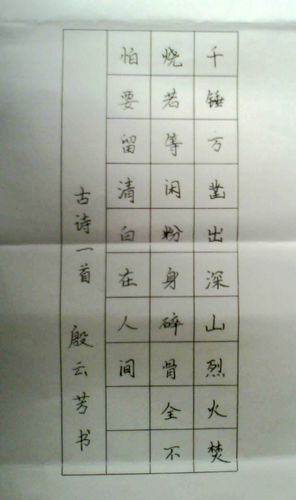 千锤万凿出深山烈火焚
烧若等闲粉身碎骨全不
怕要留清白在人间
古诗一首 殷云芳书